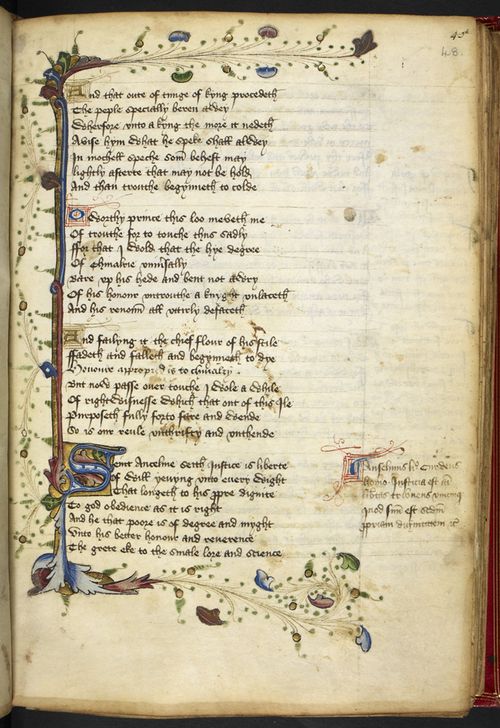 48.
And that oute of tunge of kyng procedeth
The peple specially beren awey
Wherfore vnto a kyng the more it nedeth
Avise hym what he speke shall alwey
In mochell speche som behest may
lightly aftirte that may not be holde
And than trouthe begynneth to colde
O worthy prince this loo meveth me
Of trouthe for to touche thus sadly
ffor that I wold that the hye degree
Of Chiualrie vniu'sally
Bare vp his hede and bent not awry
Of his honour vntrouthe a knyght vnlaceth
And his renoun all vatirly defaceth
And failyng it the chief flour of his stile
ffadeth and falleth and begynneth to dye
Honoure appropred is to chiualry
But now passe over touche I wole a while
Of rightwisnesse which that out of this Ile
Purposeth fully forto fare and wende
So is our reule vnthrifty and vnthende
Seint Ancelme seith Iustice is liberte
of will yevyng vnto every wight
That longeth to his ppre dignite
To god obedience as it is right
And he that poore is of degree and myght
Vnto his better honour and reuerence
The grete eke to the smale lore and science
Iusticia est